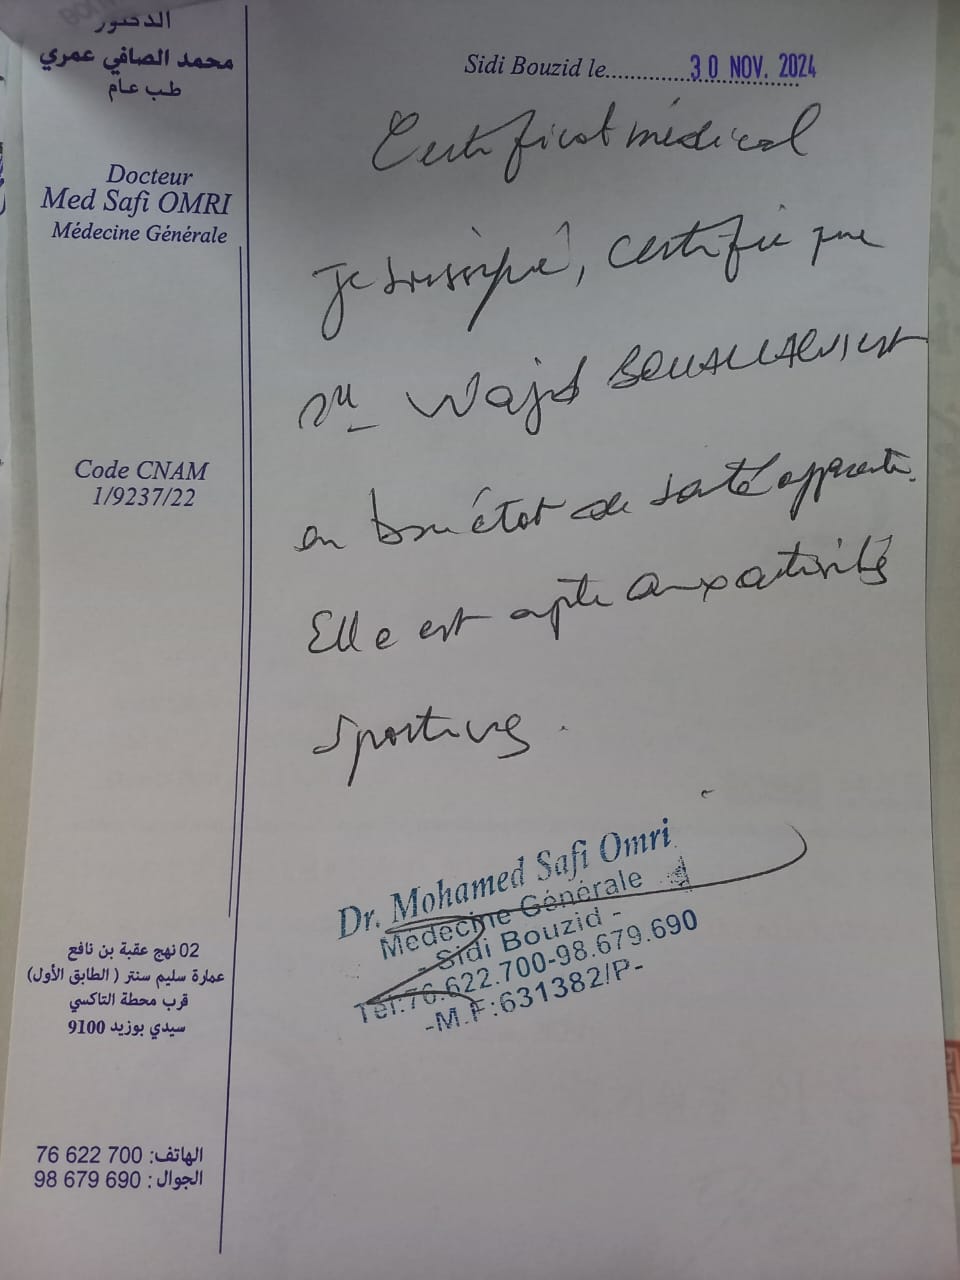 الدكتور
محمد الصافي عمري
طب عام
Docteur
Med Safi OMRI
Médecine Générale
Code CNAM
1/9237/22
02 نهج عقبة بن نافع
عمارة سليم سنتر ( الطابق الأول)
قرب محطة التاكسي
سيدي بوزيد 9100
الهاتف: 76 622 700
الجوال : 98 679 690
Sidi Bouzid le..............30 NOV. 2024
Certificat médical
Je soussigné, certifie que
Wajd est
en bon état de santé apparente.
Elle est apte aux activités
sportives.
Dr. Mohamed Safi Omri
Médecine Générale
- Sidi Bouzid -
Tél:76.622.700-98.679.690
-M.F:631382/P-